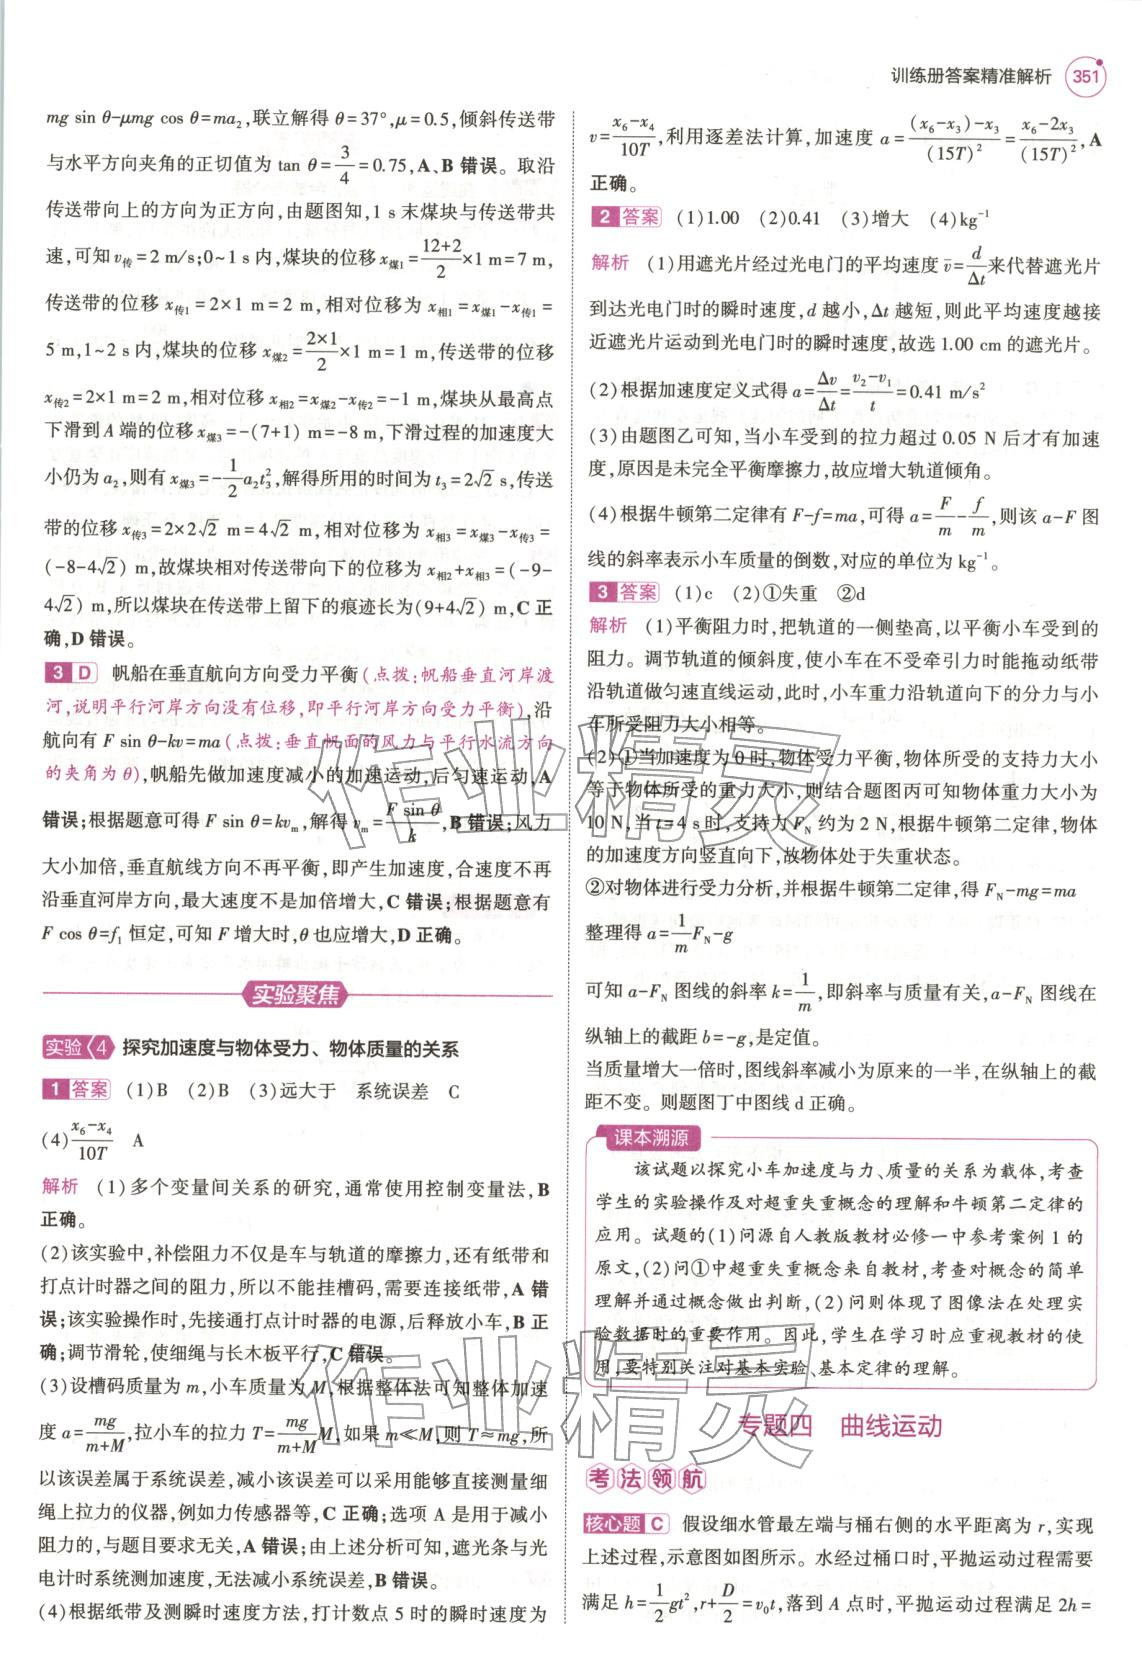 训练册答案精准解析 351
mg sin θ-μmg cos θ=ma₂,联立解得 θ=37°,μ=0.5,倾斜传送带
与水平方向夹角的正切值为 tan θ=3/4=0.75,A、B 错误。取沿
传送带向上的方向为正方向,由题图知,1 s 末煤块与传送带共
速,可知 v传=2 m/s;0~1 s 内,煤块的位移 x煤1=(12+2)/2×1 m=7 m,
传送带的位移 x传1=2×1 m=2 m,相对位移为 x相1=x煤1-x传1=
5 m,1~2 s 内,煤块的位移 x煤2=(2×1)/2×1 m=1 m,传送带的位移
x传2=2×1 m=2 m,相对位移 x相2=x煤2-x传2=-1 m,煤块从最高点
下滑到 A 端的位移 x煤3=-(7+1) m=-8 m,下滑过程的加速度大
小仍为 a₂,则有 x煤3=-1/2a₂t₃²,解得所用的时间为 t₃=2√2 s,传送
带的位移 x传3=2×2√2 m=4√2 m,相对位移为 x相3=x煤3-x传3=
(-8-4√2) m,故煤块相对传送带向下的位移为 x相2+x相3=(-9-
4√2) m,所以煤块在传送带上留下的痕迹长为(9+4√2) m,C 正
确,D 错误。
3 D 帆船在垂直航向方向受力平衡(点拨:帆船垂直河岸渡
河,说明平行河岸方向没有位移,即平行河岸方向受力平衡),沿
航向有 F sin θ-kv=ma(点拨:垂直帆面的风力与平行水流方向
的夹角为 θ),帆船先做加速度减小的加速运动,后匀速运动,A
错误;根据题意可得 F sin θ=kvₘ,解得 vₘ=F sin θ/k,B 错误;风力
大小加倍,垂直航线方向不再平衡,即产生加速度,合速度不再
沿垂直河岸方向,最大速度不是加倍增大,C 错误;根据题意有
F cos θ=f₁ 恒定,可知 F 增大时,θ 也应增大,D 正确。
实验聚焦
实验 4 探究加速度与物体受力、物体质量的关系
1 答案 (1)B (2)B (3)远大于 系统误差 C
(4)(x₆-x₄)/10T A
解析 (1)多个变量间关系的研究,通常使用控制变量法,B
正确。
(2)该实验中,补偿阻力不仅是车与轨道的摩擦力,还有纸带和
打点计时器之间的阻力,所以不能挂槽码,需要连接纸带,A 错
误;该实验操作时,先接通打点计时器的电源,后释放小车,B 正
确;调节滑轮,使细绳与长木板平行,C 错误。
(3)设槽码质量为 m,小车质量为 M,根据整体法可知整体加速
度 a=mg/(m+M),拉小车的拉力 T=mg/(m+M)M,如果 m≪M,则 T≈mg,所
以该误差属于系统误差,减小该误差可以采用能够直接测量细
绳上拉力的仪器,例如力传感器等,C 正确;选项 A 是用于减小
阻力的,与题目要求无关,A 错误;由上述分析可知,遮光条与光
电计时系统测加速度,无法减小系统误差,B 错误。
(4)根据纸带及测瞬时速度方法,打计数点 5 时的瞬时速度为
v=(x₆-x₄)/10T,利用逐差法计算,加速度 a=((x₆-x₃)-x₃)/(15T)²=(x₆-2x₃)/(15T)²,A
正确。
2 答案 (1)1.00 (2)0.41 (3)增大 (4)kg⁻¹
解析 (1)用遮光片经过光电门的平均速度 v̄=d/Δt来代替遮光片
到达光电门时的瞬时速度,d 越小,Δt 越短,则此平均速度越接
近遮光片运动到光电门时的瞬时速度,故选 1.00 cm 的遮光片。
(2)根据加速度定义式得 a=Δv/Δt=(v₂-v₁)/t=0.41 m/s²
(3)由题图乙可知,当小车受到的拉力超过 0.05 N 后才有加速
度,原因是未完全平衡摩擦力,故应增大轨道倾角。
(4)根据牛顿第二定律有 F-f=ma,可得 a=F/m-f/m,则该 a-F 图
线的斜率表示小车质量的倒数,对应的单位为 kg⁻¹。
3 答案 (1)c (2)①失重 ②d
解析 (1)平衡阻力时,把轨道的一侧垫高,以平衡小车受到的
阻力。调节轨道的倾斜度,使小车在不受牵引力时能拖动纸带
沿轨道做匀速直线运动,此时,小车重力沿轨道向下的分力与小
车所受阻力大小相等。
(2)①当加速度为 0 时,物体受力平衡,物体所受的支持力大小
等于物体所受的重力大小,则结合题图丙可知物体重力大小为
10 N,当 t=4 s 时,支持力 F_N 约为 2 N,根据牛顿第二定律,物体
的加速度方向竖直向下,故物体处于失重状态。
②对物体进行受力分析,并根据牛顿第二定律,得 F_N-mg=ma
整理得 a=1/mF_N-g
可知 a-F_N 图线的斜率 k=1/m,即斜率与质量有关,a-F_N 图线在
纵轴上的截距 b=-g,是定值。
当质量增大一倍时,图线斜率减小为原来的一半,在纵轴上的截
距不变。则题图丁中图线 d 正确。
课本溯源
该试题以探究小车加速度与力、质量的关系为载体,考查
学生的实验操作及对超重失重概念的理解和牛顿第二定律的
应用。试题的(1)问源自人教版教材必修一中参考案例 1 的
原文,(2)问①中超重失重概念来自教材,考查对概念的简单
理解并通过概念做出判断,(2)问则体现了图像法在处理实
验数据时的重要作用。因此,学生在学习时应重视教材的使
用,要特别关注对基本实验、基本定律的理解。
专题四 曲线运动
考法领航
核心题 C 假设细水管最左端与桶右侧的水平距离为 r,实现
上述过程,示意图如图所示。水经过桶口时,平抛运动过程需要
满足 h=1/2gt²,r+D/2=v₀t,落到 A 点时,平抛运动过程满足 2h=
作业精灵
作业精灵